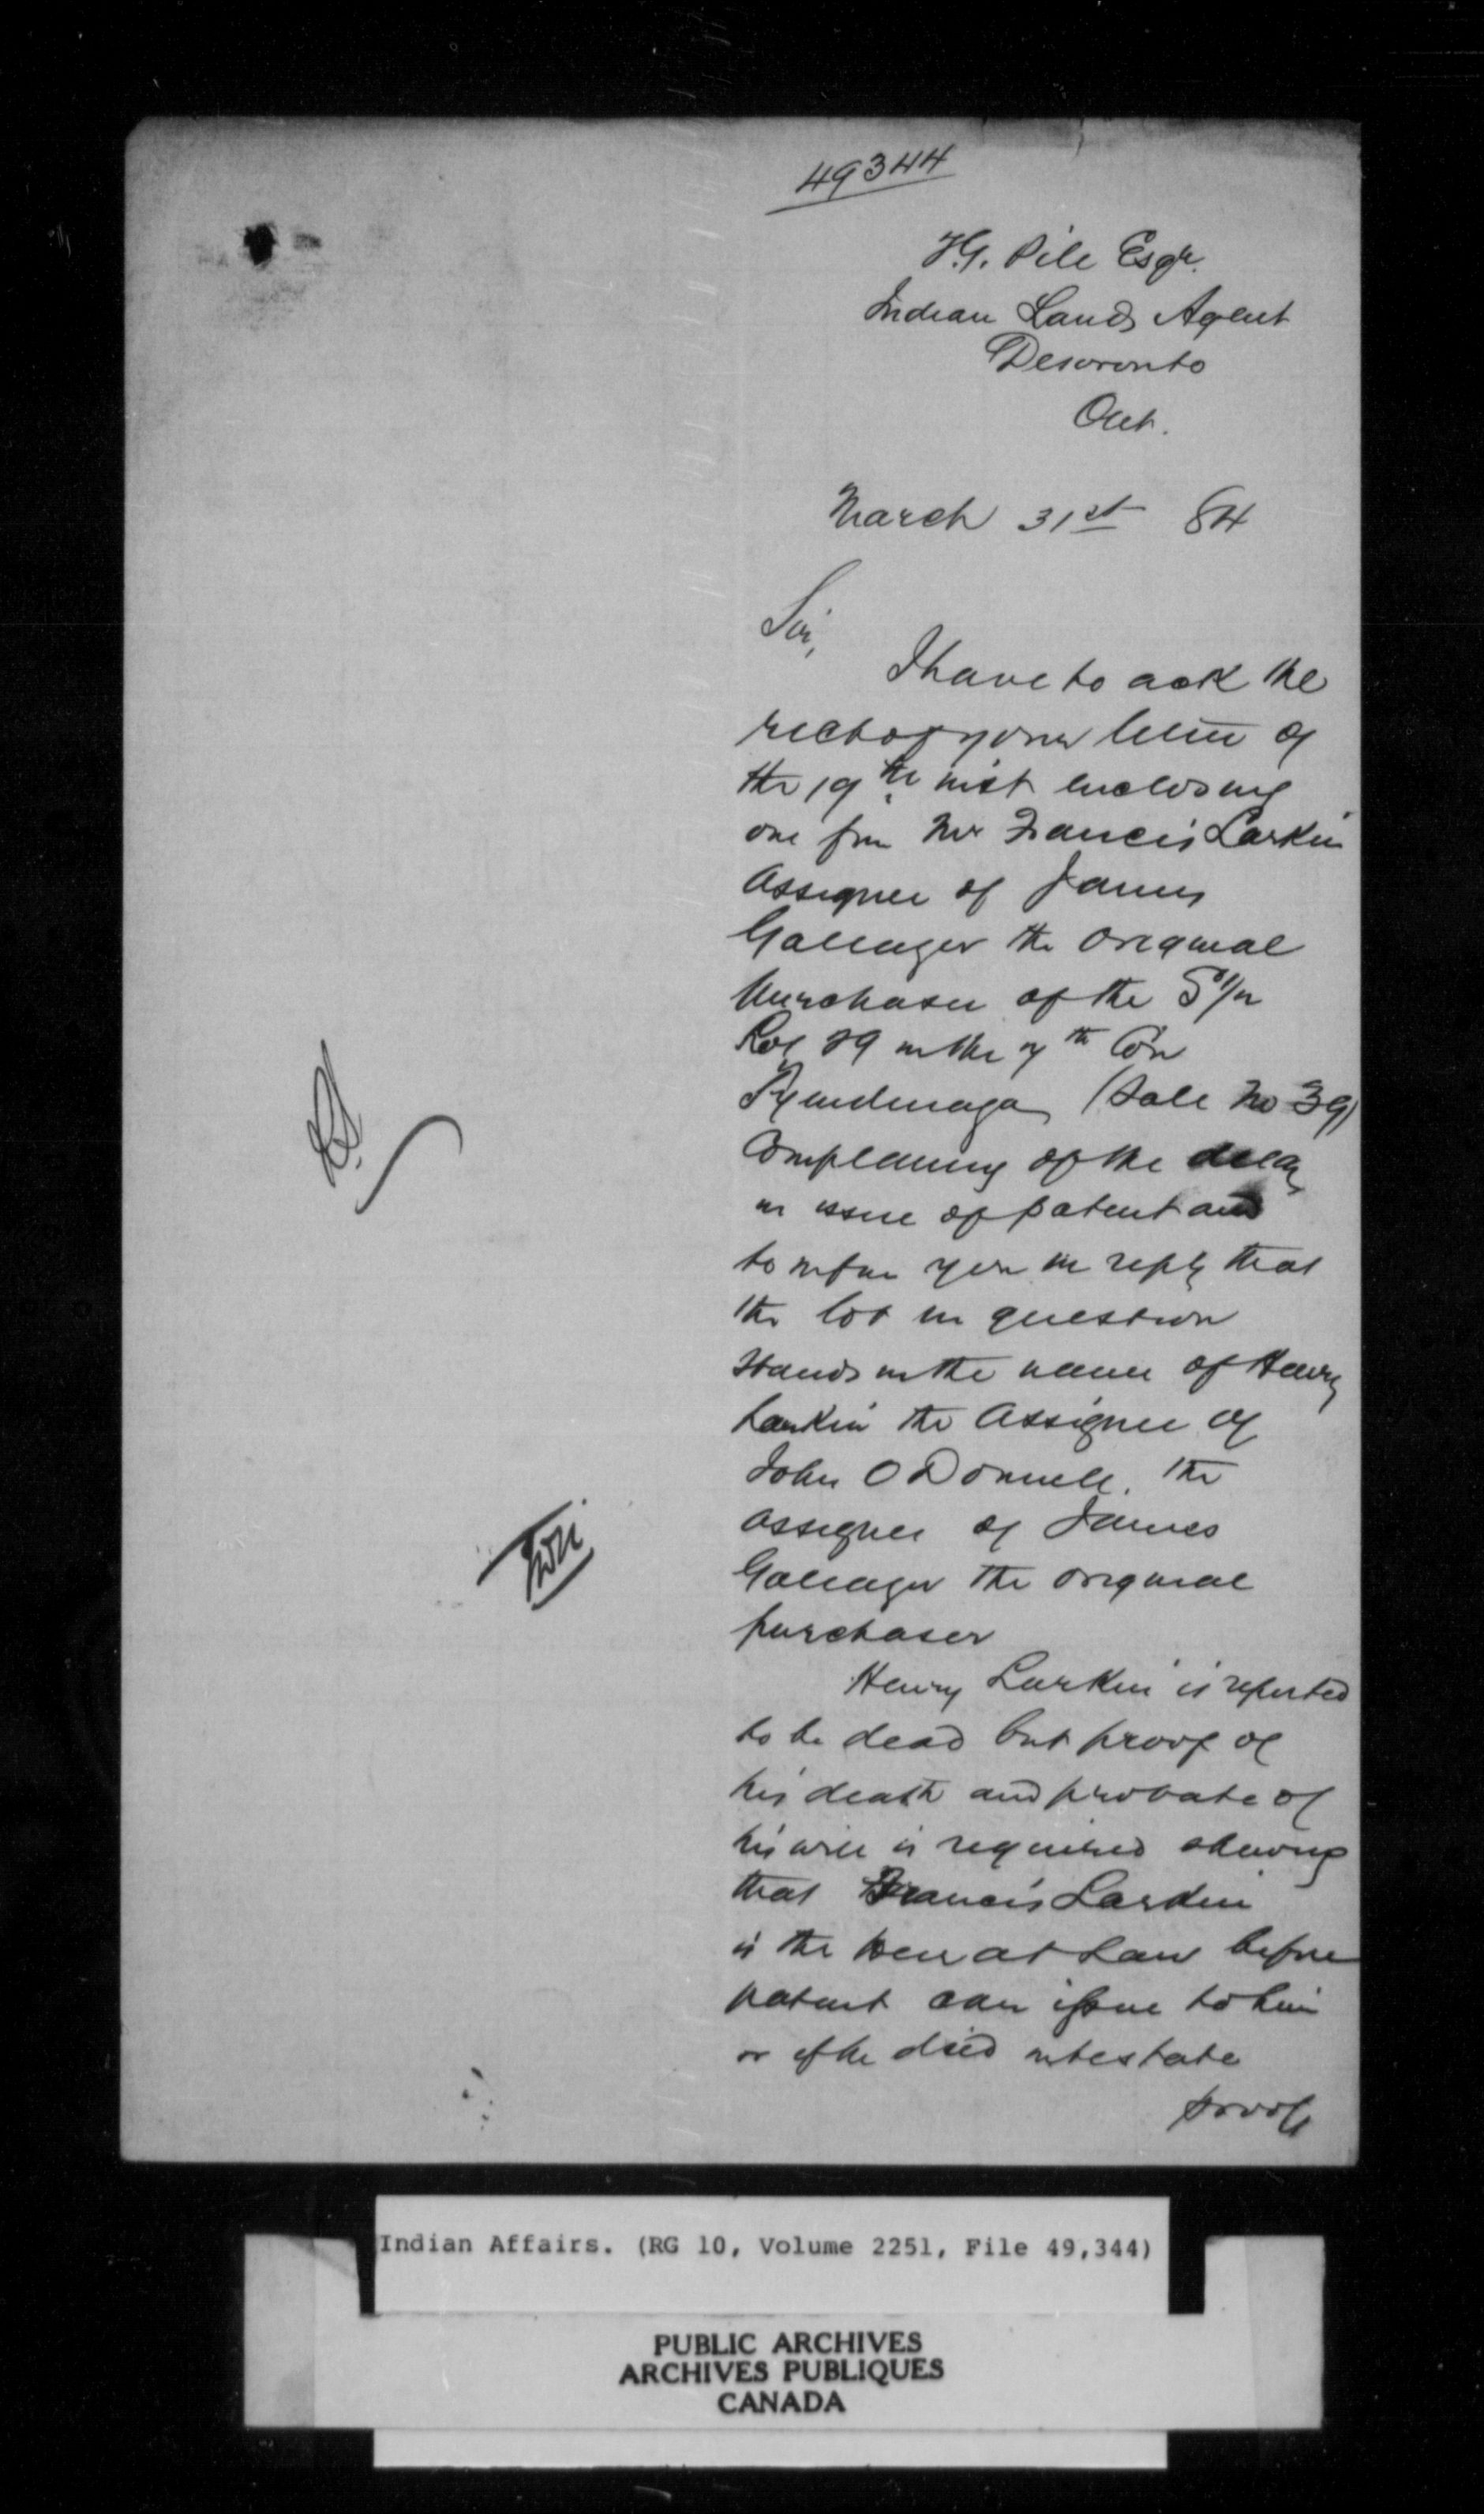 49344
Esqr.
Indian Lands Agent
Deseronto
Ont.
March 31st 84
Sir,
I have to ack the
rect of your letter of
the 19th inst enclosing
one from Mr Francis Larkin
Assignee of James
Gallager the original
purchaser of the S 1/2
Lot 29 in the Con
Tyendinaga (Sale No 39)
Complaining of the delay
in issue of patent and
to inform you in reply that
the lot in question
stands in the name of Henry
Larkin the Assignee of
John O Donnell, the
assignee of James
Gallager the original
purchaser
Henry Larkin is reported
to be dead but proof of
his death and probate of
his will is required shewing
that Francis Larkin
is the heir at Law before
patent can issue to him
or if he died intestate
proof
Indian Affairs. (RG 10, Volume 2251, File 49,344)
PUBLIC ARCHIVES
ARCHIVES PUBLIQUES
CANADA